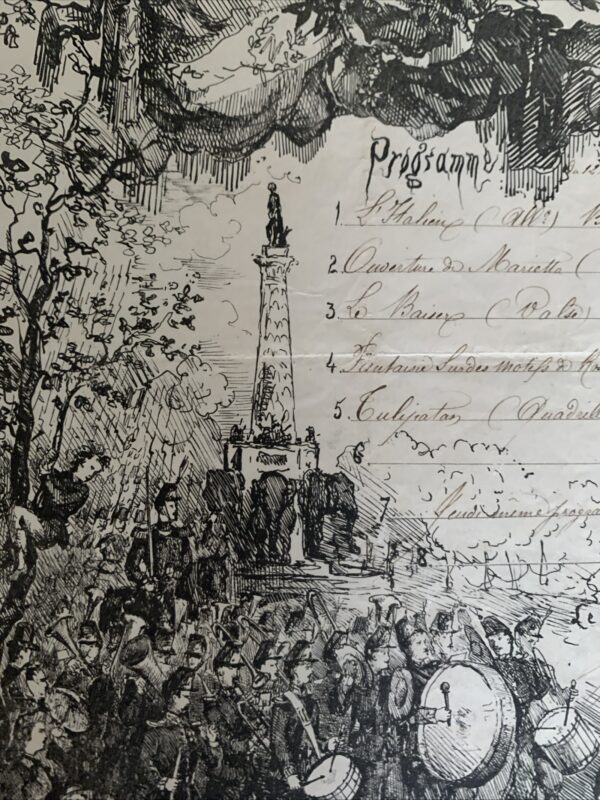 Programme
1 L'Italien (Allo)
2 Ouverture de Marietta (
3 Le Baiser (Valse)
4 Fantaisie sur des motifs de
5 Tulipatan (Quadrille
Jeudi même progra
7
8
Le